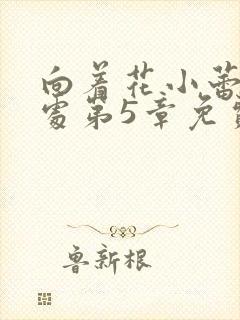 向着花小蕾
处第5章免费
鲁新根